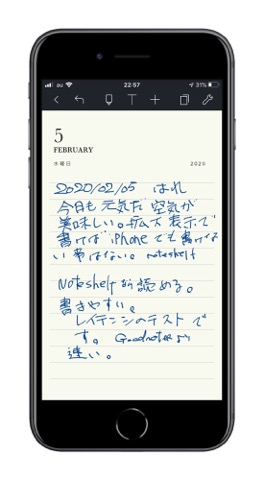 au 22:57 31%
5
FEBRUARY
水曜日 2020
2020/02/05 はれ
今日も元気だ 空気が
美味しい。拡大表示で
書けば iPhone でも書けな
い事はない。noteshelf
Noteshelf なら読める。
書きやすい。
レイテンシのテストで
す。Goodnotesより
速い。